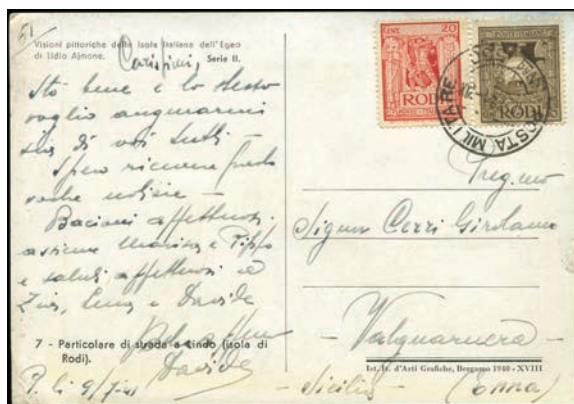 51
Visioni pittoriche delle Isole Italiane dell'Egeo
di Lidio Ajmone. Serie II.
Carissimi,
Sto bene e lo stesso
voglio augurarmi
sia di voi tutti -
Spero ricevere
vostre notizie -
Bacioni affettuosi
assieme Marisa e Pippo
e saluti affettuosi a
Zia, e Davide
Davide
7 - Particolare di strada a Lindo (isola di
Rodi).
P. li 9/7-41
CENT. 20
RODI
POSTE ITALIANE
RODI
POSTA MILITARE
Preg.mo
Signor Cerri Girolamo
- Valguarnera -
Ist. It. d'Arti Grafiche, Bergamo 1940 - XVIII
- Sicilia - (Enna)